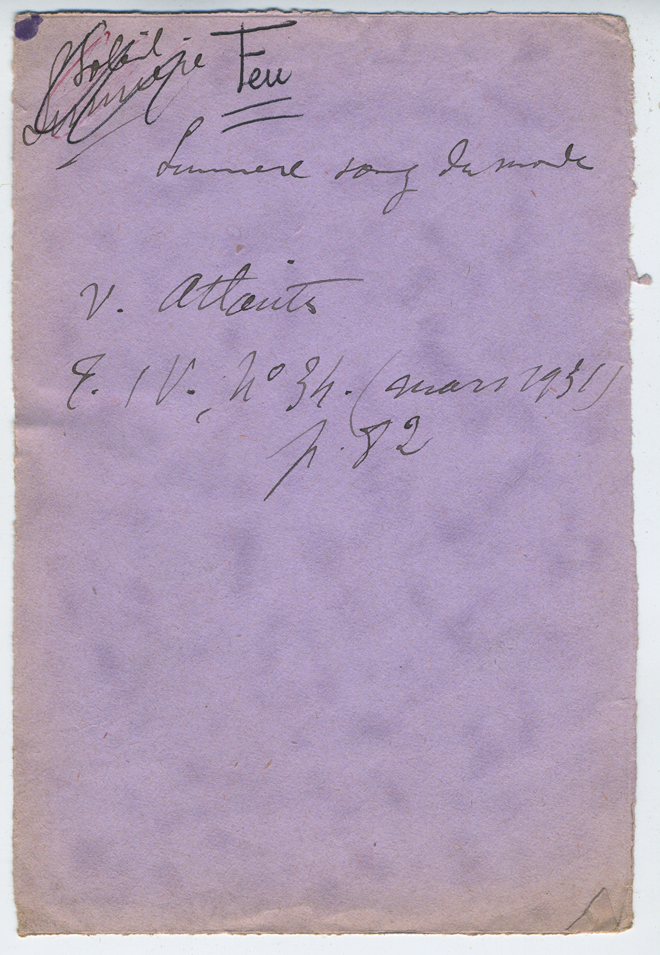 Soleil
Lumière Feu
Lumière sang du monde
V. Atlantis
T. IV., No 34. (mars 1931)
p. 82